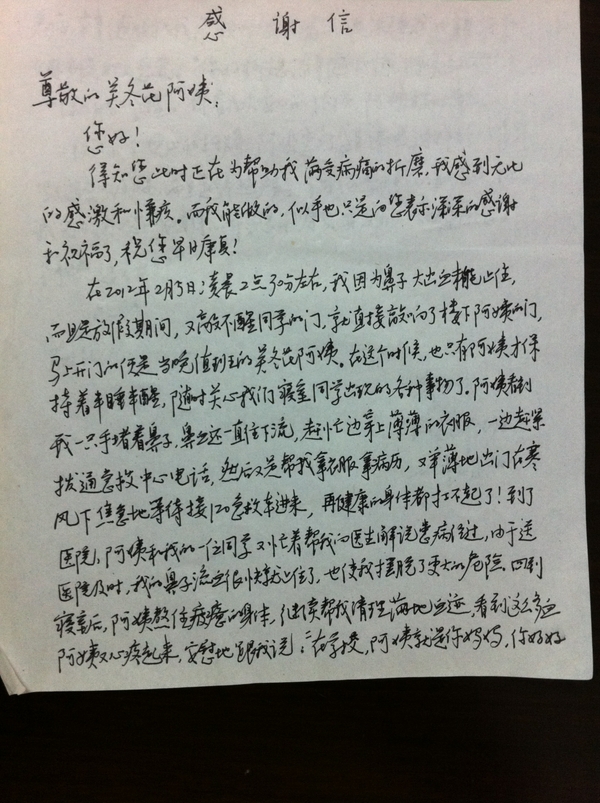 感 谢 信
尊敬的关冬花阿姨：
您好！
得知您此时正在为帮助我而受病痛的折磨，我感到无比
的感激和愧疚。而我能做的，似乎也只是向您表示深深的感谢
和祝福了，祝您早日康复！
在2012年2月5日凌晨2点30分左右，我因为鼻子大出血未能止住，
而且是放假期间，又敲不醒同学的门，就直接敲响了楼下阿姨的门，
马上开门的便是当晚值班的关冬花阿姨。在这个时候，也只有阿姨才保
持着半睡半醒，随时关心我们寝室同学出现的各种事物了。阿姨看到
我一只手堵着鼻子，鼻血还一直往下流，赶忙边穿上薄薄的衣服，一边赶紧
拨通急救中心电话，然后又是帮我拿衣服拿病历，又单薄地出门在寒
风下焦急地等待接120急救车进来，再健康的身体都扛不起了！到了
医院，阿姨和我的一位同学又忙着帮我向医生解说患病经过，由于送
医院及时，我的鼻子流血很快就止住了，也使我摆脱了更大的危险。回到
寝室后，阿姨整住疲惫的身体，继续帮我清理满地血迹，看到这么多血
阿姨又心疼起来，安慰地跟我说：“在学校，阿姨就是你妈妈，你好好